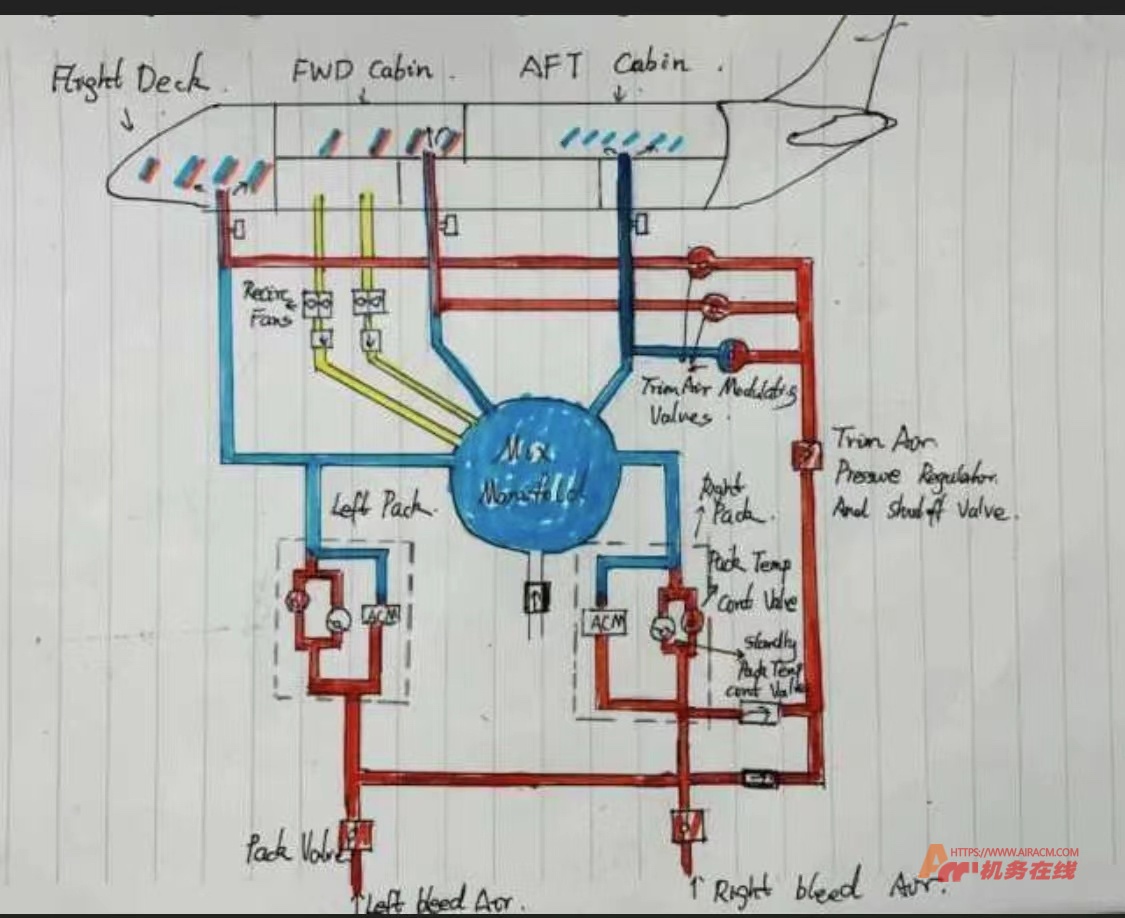 Flight Deck.
FWD Cabin.
AFT Cabin.
Recirc
Fans
Trim Air Modulating
Valves.
Mix
Manifold
Trim Air
Pressure Regulator
And shutoff Valve.
Left Pack.
Right
Pack.
Pack Temp
Cont Valve
ACM
ACM
Standby
Pack Temp
cont Valve
Pack Valve
Left bleed Air.
Right bleed Air.
HTTPS://WWW.AIRACM.COM
机务在线